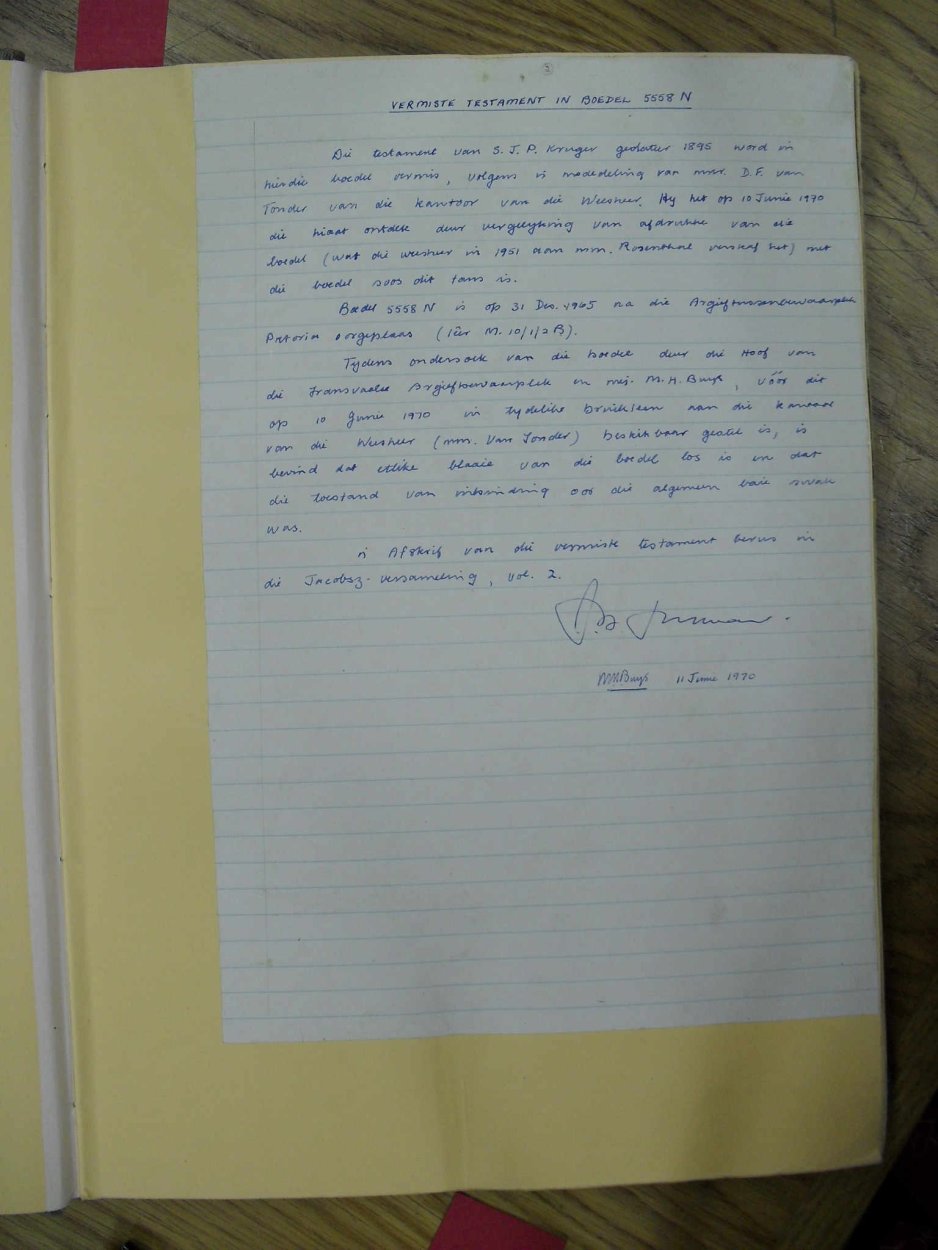 VERMISTE TESTAMENT IN BOEDEL 5558 N
Die testament van S. J. P. Kruger gedateer 1895 word in
hierdie boedel vermis, volgens 'n mededeling van mnr. D.F. van
Tonder van die kantoor van die Weesheer. Hy het op 10 Junie 1970
die hiaat ontdek deur vergelyking van afdrukke van die
boedel (wat die weesheer in 1951 aan mnr. Rosenthal verskaf het) met
die boedel soos dit tans is.
Boedel 5558 N is op 31 Des. 1965 na die Argieftussenbewaarplek
Pretoria oorgeplaas (lêer M. 10/1/2 B).
Tydens ondersoek van die boedel deur die Hoof van
die Transvaalse Argiefbewaarplek en mej. M.H. Buys, vóór dit
op 10 Junie 1970 in tydelike bruikleen aan die kantoor
van die Weesheer (mnr. Van Tonder) beskikbaar gestel is, is
bevind dat etlike blaaie van die boedel los is en dat
die toestand van inbinding oor die algemeen baie swak
was.
'n Afskrif van die vermiste testament berus in
die Jacobsz-versameling, vol. 2.
MHBuys 11 Junie 1970